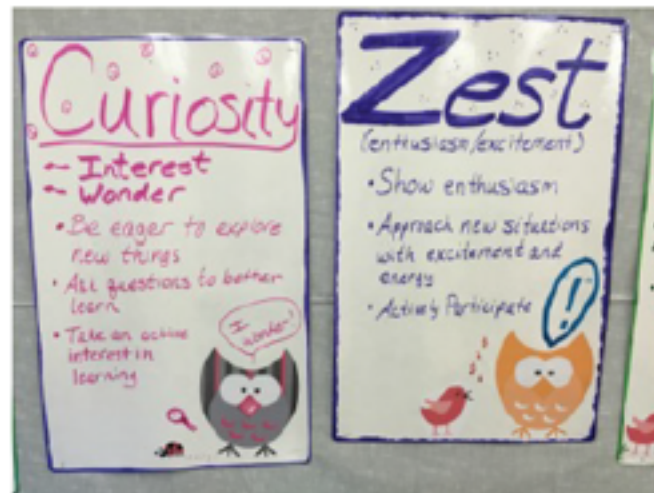 Curiosity
- Interest
- Wonder
• Be eager to explore
new things
• Ask questions to better
learn
• Take an active
interest in
learning
I
wonder!
Zest
(enthusiasm/excitement)
• Show enthusiasm
• Approach new situations
with excitement and
energy
• Actively Participate
!